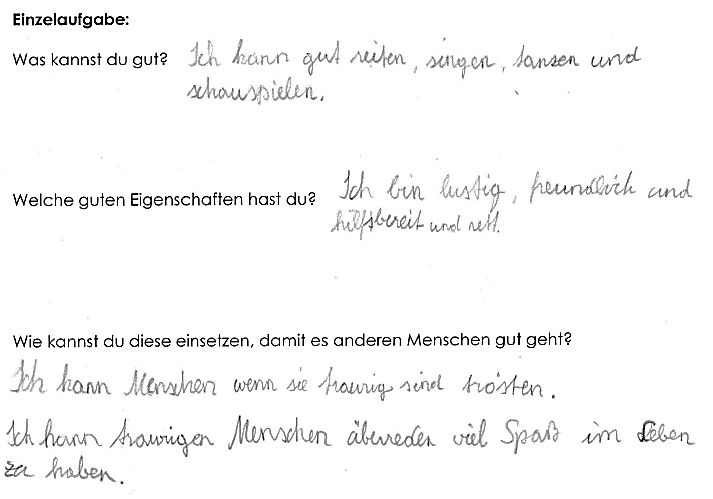 Einzelaufgabe:
Was kannst du gut? Ich kann gut reiten, singen, tansen und
schauspielen.
Welche guten Eigenschaften hast du? Ich bin lustig, freundlich und
hilfsbereit und nett.
Wie kannst du diese einsetzen, damit es anderen Menschen gut geht?
Ich kann Menschen wenn sie traurig sind trösten.
Ich kann traurigen Menschen überreden viel Spaß im Leben
zu haben.